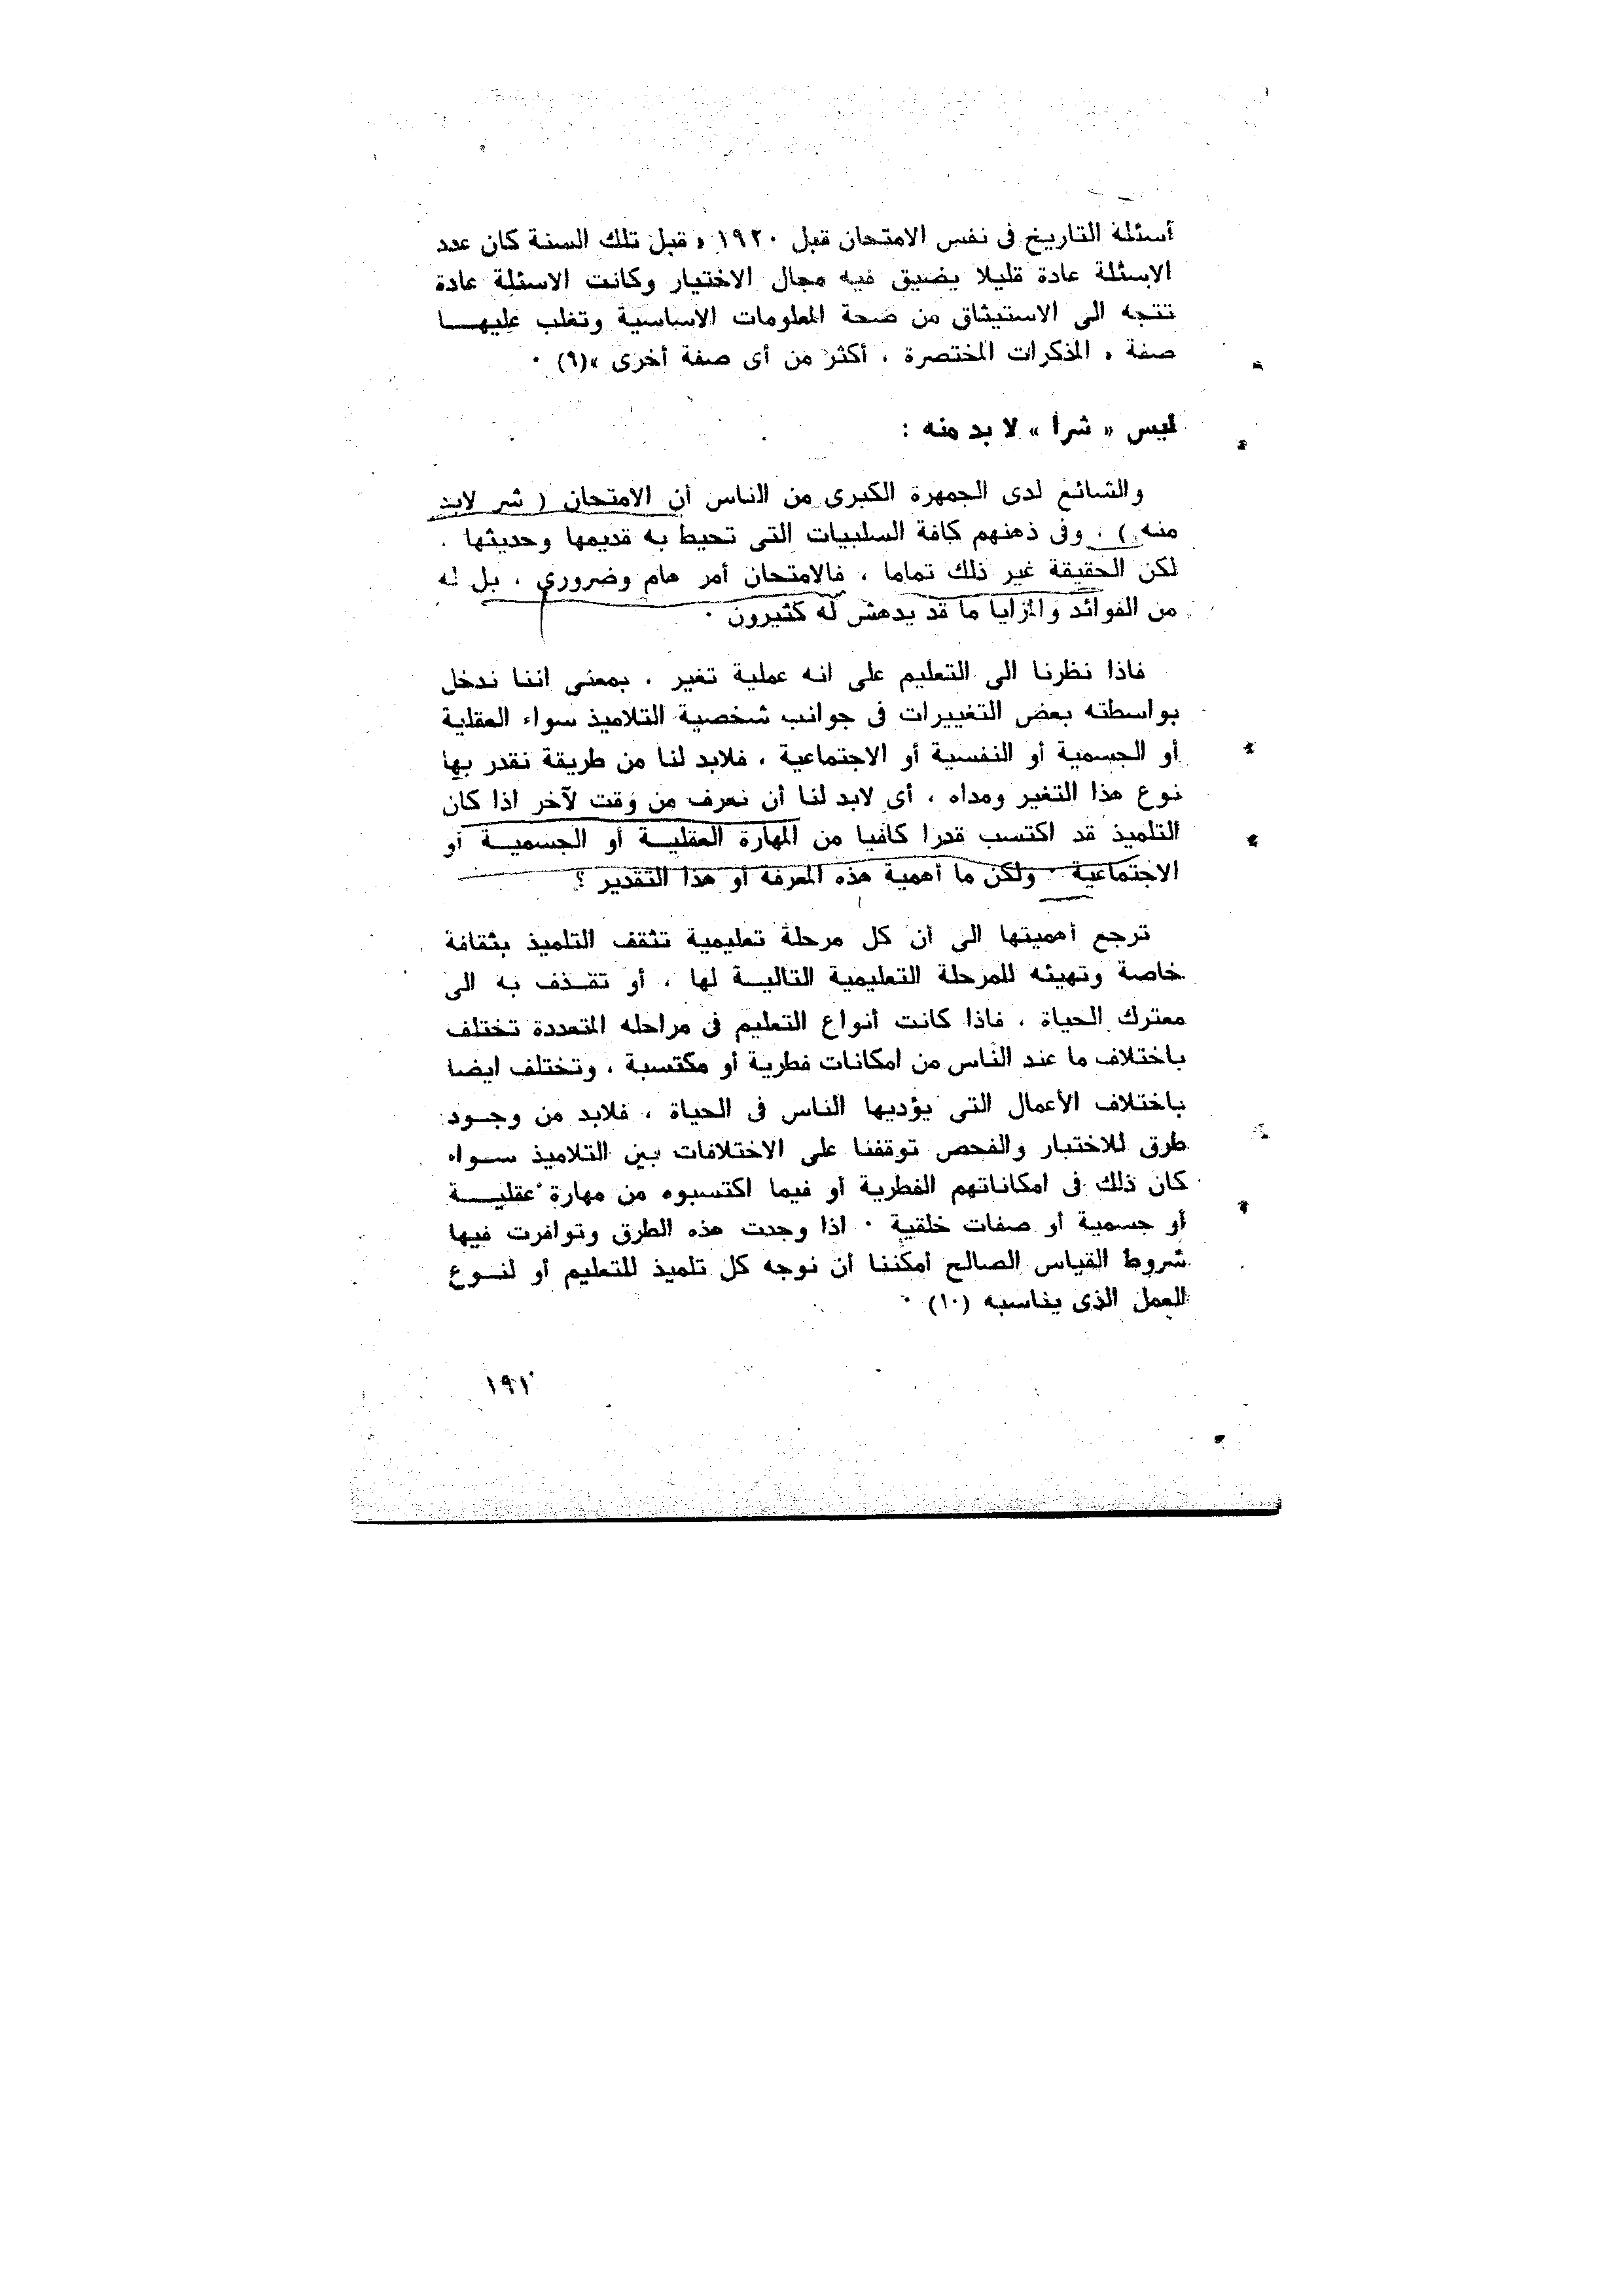 أسئلة التاريخ فى نفس الامتحان قبل ١٩٢٠ « قبل تلك السنة كان عدد
الاسئلة عادة قليلا يضيق فيه مجال الاختيار وكانت الاسئلة عادة
تتجه الى الاستيثاق من صحة المعلومات الاساسية وتغلب عليهـــا
صفة « المذكرات المختصرة ، أكثر من أى صفة أخرى »(٩) ٠
ليس « شرا » لا بد منه :
والشائع لدى الجمهرة الكبرى من الناس أن الامتحان ( شر لابد
منه ) ، وفى ذهنهم كافة السلبيات التى تحيط به قديمها وحديثها ،
لكن الحقيقة غير ذلك تماما ، فالامتحان أمر هام وضرورى ، بل له
من الفوائد والمزايا ما قد يدهش له كثيرون ٠
فاذا نظرنا الى التعليم على انه عملية تغير ، بمعنى اننا ندخل
بواسطته بعض التغييرات فى جوانب شخصية التلاميذ سواء العقلية
أو الجسمية أو النفسية أو الاجتماعية ، فلابد لنا من طريقة نقدر بها
نوع هذا التغير ومداه ، أى لابد لنا أن نعرف من وقت لآخر اذا كان
التلميذ قد اكتسب قدرا كافيا من المهارة العقليــة أو الجسميــة أو
الاجتماعية ٠ ولكن ما أهمية هذه المعرفة أو هذا التقدير ؟
ترجع أهميتها الى أن كل مرحلة تعليمية تثقف التلميذ بثقافة
خاصة وتهيئه للمرحلة التعليمية التاليــة لها ، أو تقــذف به الى
معترك الحياة ، فاذا كانت أنواع التعليم فى مراحله المتعددة تختلف
باختلاف ما عند الناس من امكانات فطرية أو مكتسبة ، وتختلف ايضا
باختلاف الأعمال التى يؤديها الناس فى الحياة ، فلابد من وجــود
طرق للاختبار والفحص توقفنا على الاختلافات بين التلاميذ ســواء
كان ذلك فى امكاناتهم الفطرية أو فيما اكتسبوه من مهارة عقليـــة
أو جسمية أو صفات خلقية ٠ اذا وجدت هذه الطرق وتوافرت فيها
شروط القياس الصالح أمكننا أن نوجه كل تلميذ للتعليم أو لنــوع
العمل الذى يناسبه (١٠) ٠
١٩١